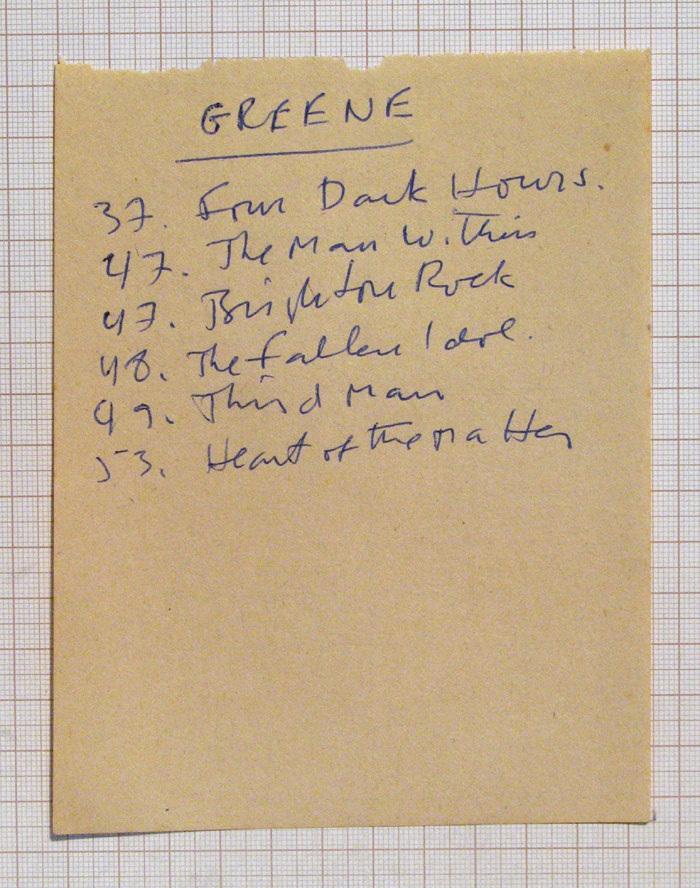 GREENE
37. Four Dark Hours.
47. The Man Within
47. Brighton Rock
48. The Fallen Idol.
49. Third Man
53. Heart of the Matter